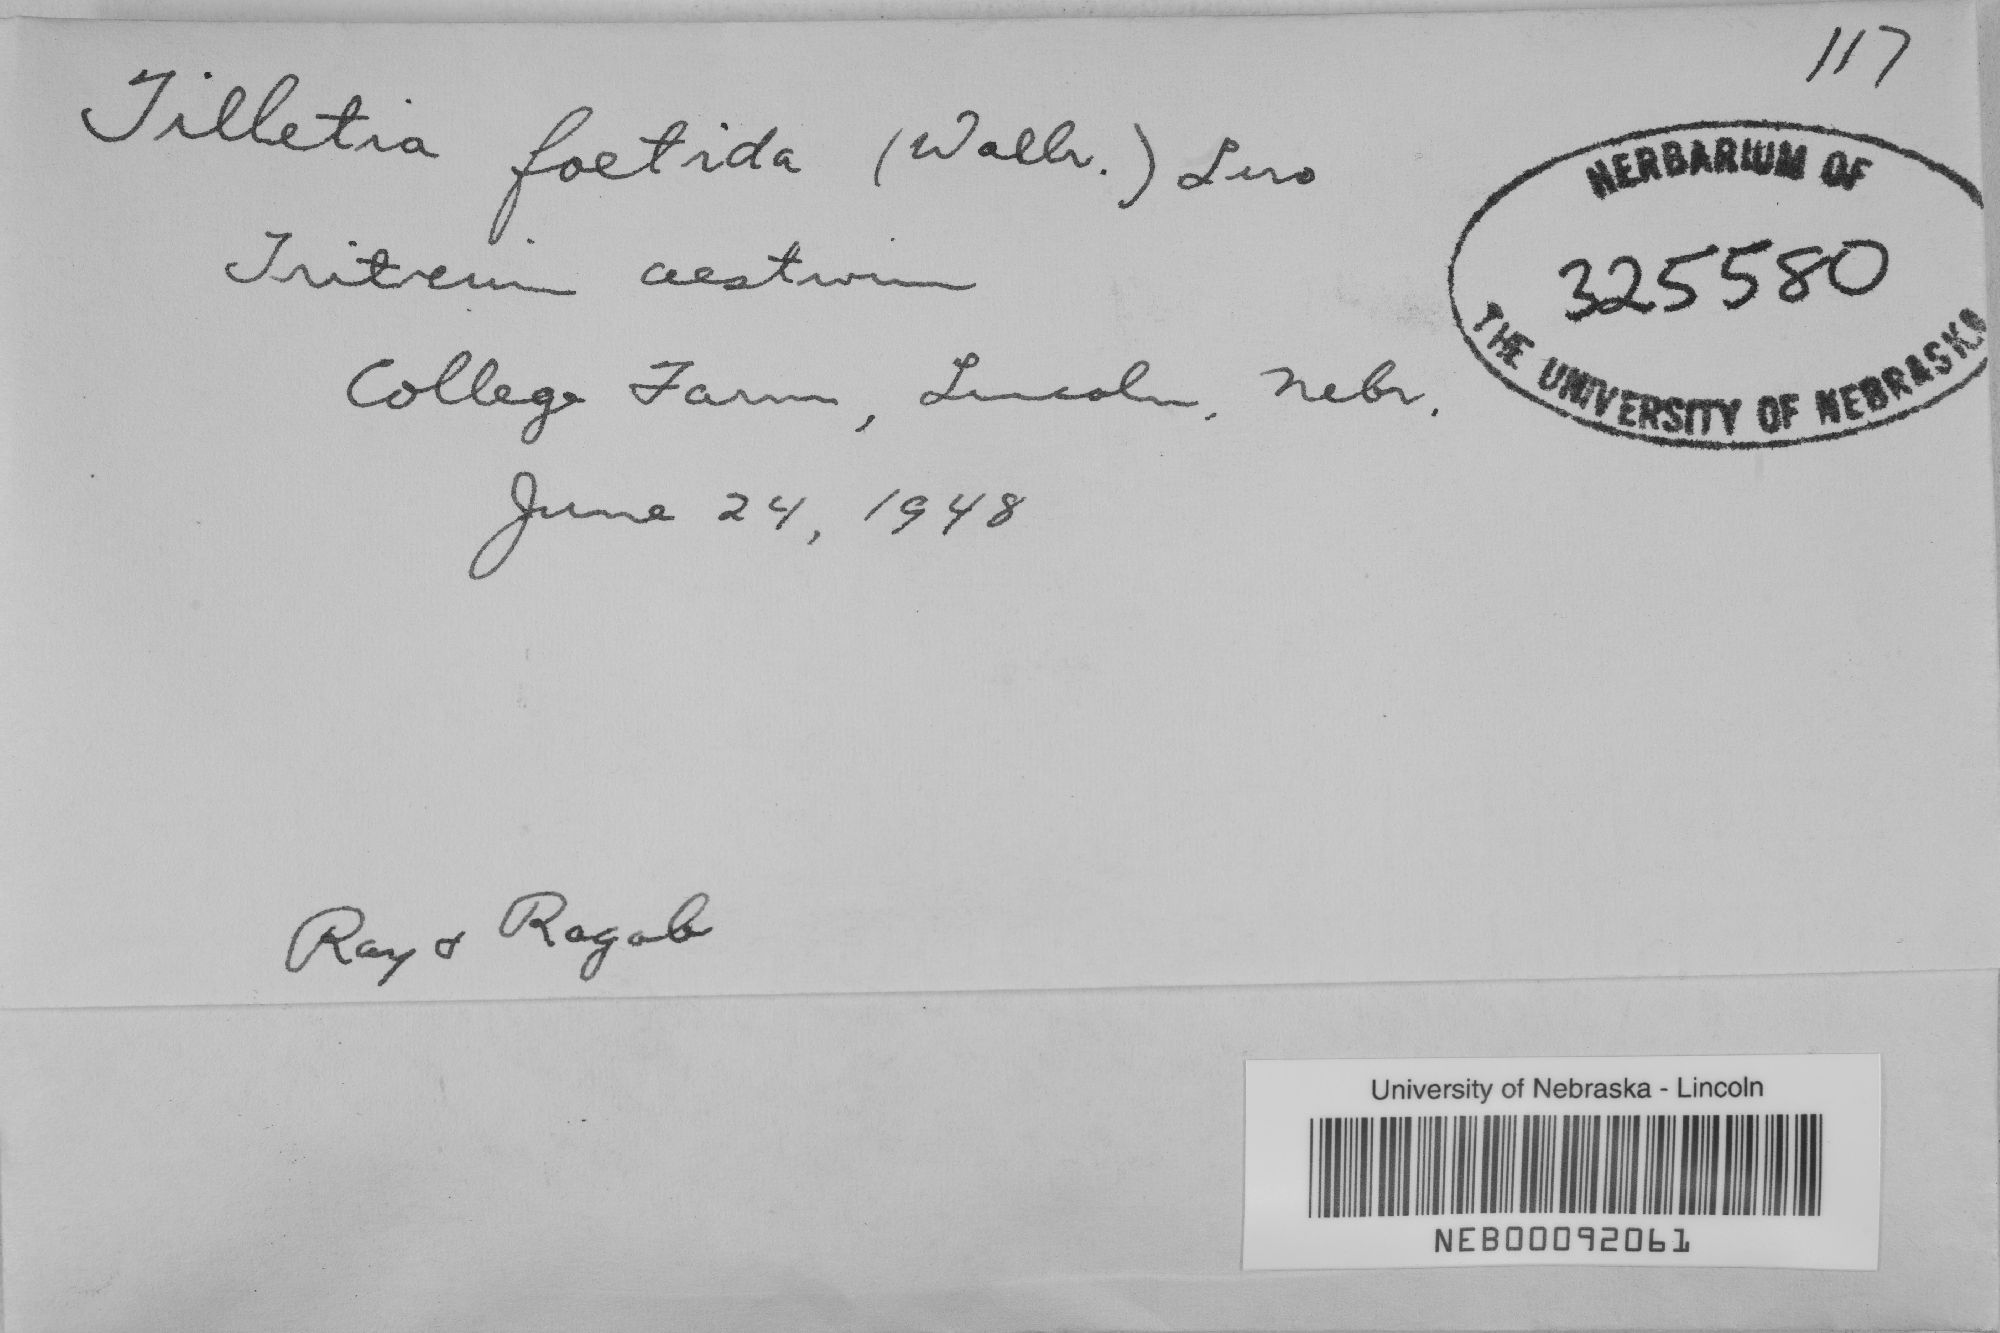 117
Tilletia foetida (Wallr.) Liro
Triticum aestivum
College Farm, Lincoln, Nebr.
June 24, 1948
HERBARIUM OF
325580
THE UNIVERSITY OF NEBRASKA
Ray & Ragab
University of Nebraska - Lincoln
NEB00092061